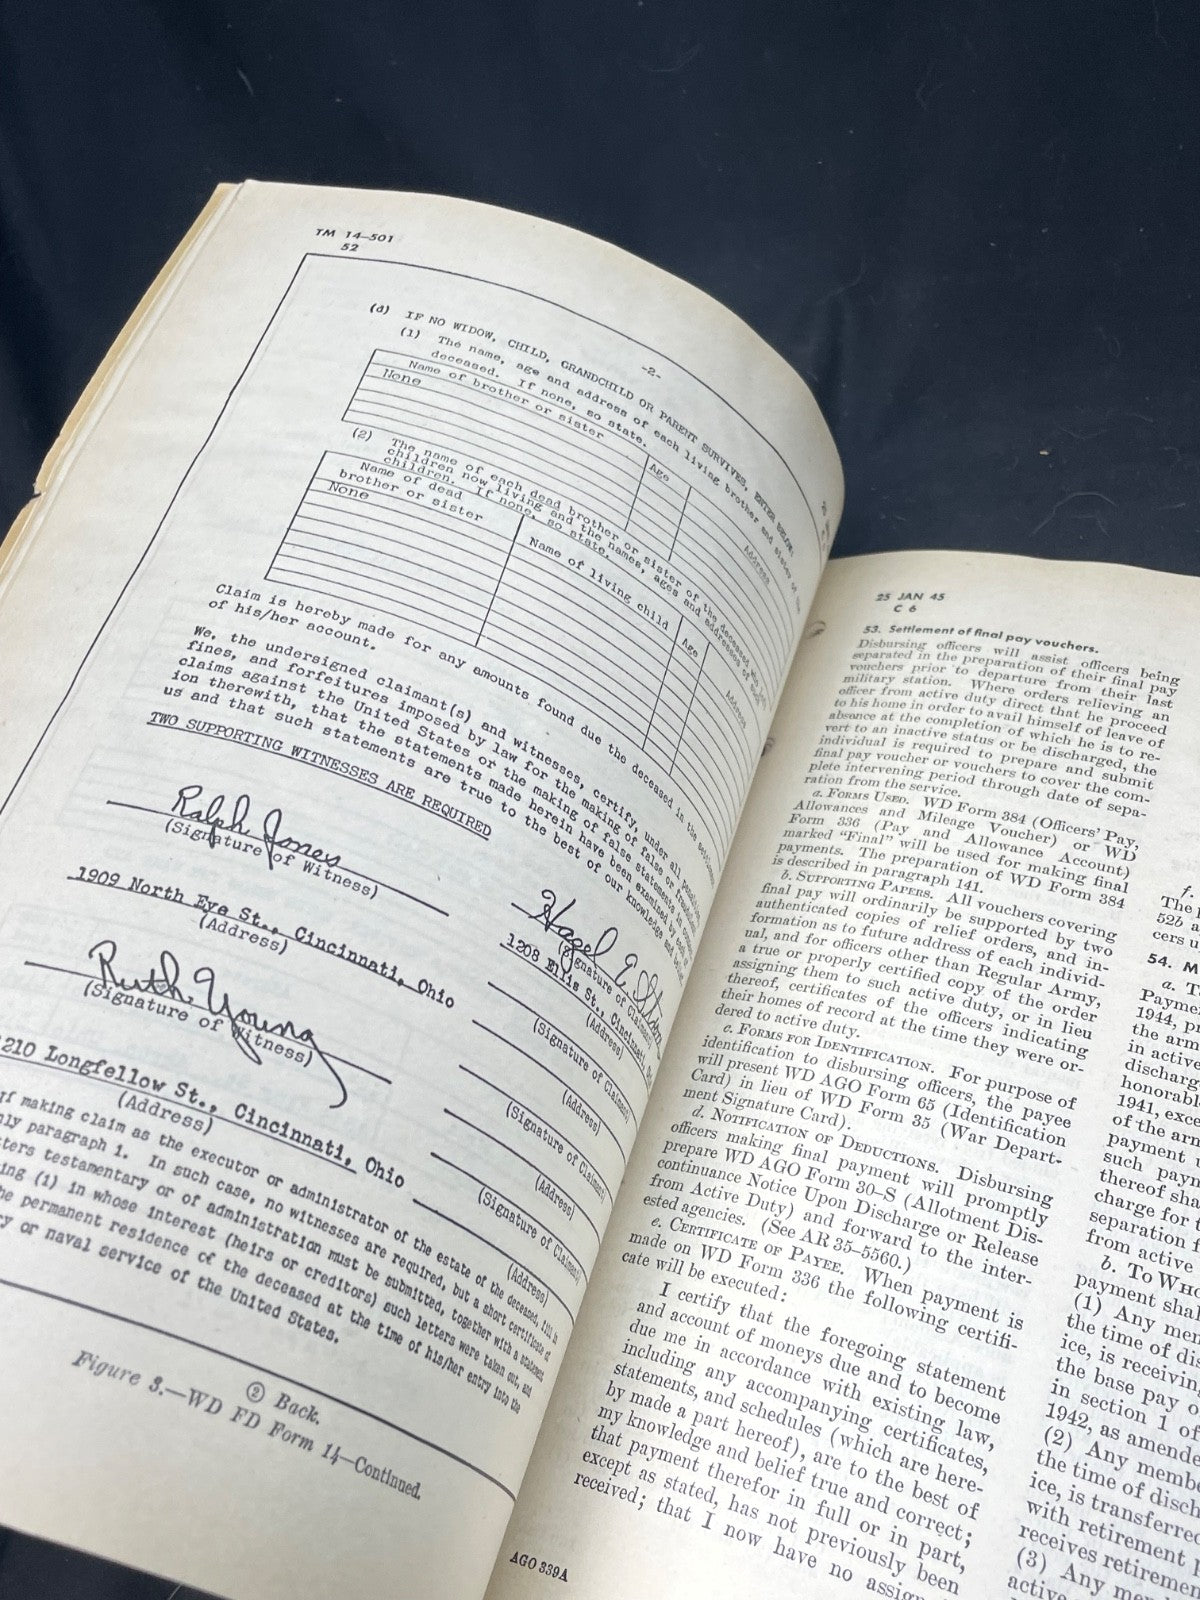 TM 14–501
52
-2-
(d) IF NO WIDOW, CHILD, GRANDCHILD OR PARENT SURVIVES, ENTER BELOW:
(1) The name, age and address of each living brother and sister of the
deceased. If none, so state.
Name of brother or sister
Age
Address
None
(2) The name of each dead brother or sister of the deceased
children now living and the names, ages and addresses of
children. If none, so state.
Name of dead
brother or sister
Name of living child
Age
Address
None
Claim is hereby made for any amounts found due the deceased in the settlement
of his/her account.
We, the undersigned claimant(s) and witnesses, certify, under all
fines, and forfeitures imposed by law for the making of false or fraudulent
claims against the United States or the making of false statements in
ion therewith, that the statements made herein have been examined by each of
us and that such statements are true to the best of our knowledge and belief
TWO SUPPORTING WITNESSES ARE REQUIRED
Ralph Jones
(Signature of Witness)
1909 North Eye St., Cincinnati, Ohio
(Address)
Ruth Young
(Signature of Witness)
1210 Longfellow St., Cincinnati, Ohio
(Address)
Hazel E.
(Signature of Claimant)
1208 Ellis St., Cincinnati,
(Address)
(Signature of Claimant)
(Address)
(Signature of Claimant)
(Address)
(Signature of Claimant)
(Address)
If making claim as the executor or administrator of the estate of the deceased, fill in
only paragraph 1. In such case, no witnesses are required, but a short certificate of
letters testamentary or of administration must be submitted, together with a statement
(1) in whose interest (heirs or creditors) such letters were taken out, and
the permanent residence of the deceased at the time of his/her entry into the
or naval service of the United States.
② Back.
Figure 3.—WD FD Form 14—Continued.
25 JAN 45
C 6
53. Settlement of final pay vouchers.
Disbursing officers will assist officers being
separated in the preparation of their final pay
vouchers prior to departure from their last
military station. Where orders relieving an
officer from active duty direct that he proceed
to his home in order to avail himself of leave of
absence at the completion of which he is to re-
vert to an inactive status or be discharged, the
individual is required to prepare and submit
final pay voucher or vouchers to cover the com-
plete intervening period through date of sepa-
ration from the service.
a. FORMS USED. WD Form 384 (Officers' Pay,
Allowances and Mileage Voucher) or WD
Form 336 (Pay and Allowance Account)
marked “Final” will be used for making final
payments. The preparation of WD Form 384
is described in paragraph 141.
b. SUPPORTING PAPERS. All vouchers covering
final pay will ordinarily be supported by two
authenticated copies of relief orders, and in-
formation as to future address of each individ-
ual, and for officers other than Regular Army,
a true or properly certified copy of the order
assigning them to such active duty, or in lieu
thereof, certificates of the officers indicating
their homes of record at the time they were or-
dered to active duty.
c. FORMS FOR IDENTIFICATION. For purpose of
identification to disbursing officers, the payee
will present WD AGO Form 65 (Identification
Card) in lieu of WD Form 35 (War Depart-
ment Signature Card).
d. NOTIFICATION OF DEDUCTIONS. Disbursing
officers making final payment will promptly
prepare WD AGO Form 30–S (Allotment Dis-
continuance Notice Upon Discharge or Release
from Active Duty) and forward to the inter-
ested agencies. (See AR 35–5560.)
e. CERTIFICATE OF PAYEE. When payment is
made on WD Form 336 the following certifi-
cate will be executed:
I certify that the foregoing statement
and account of moneys due and to become
due me in accordance with existing law,
including any accompanying certificates,
statements, and schedules (which are here-
by made a part hereof), are to the best of
my knowledge and belief true and correct;
that payment therefor in full or in part,
except as stated, has not previously been
received; that I now have no
AGO 339A
f.
The
52b
cers
54. M
a. T
Payment
1944,
the arm
in active
discharg
honorabl
1941, exce
of the arm
payment
such paym
thereof sha
charge for
separation
from active
b. TO WHO
payment shal
(1) Any mem
the time of dis
ice, is receiving
the base pay o
in section 1 of
1942, as amende
(2) Any membe
the time of disch
ice, is transferred
with retirement
receives retiremen
(3) Any mem
active